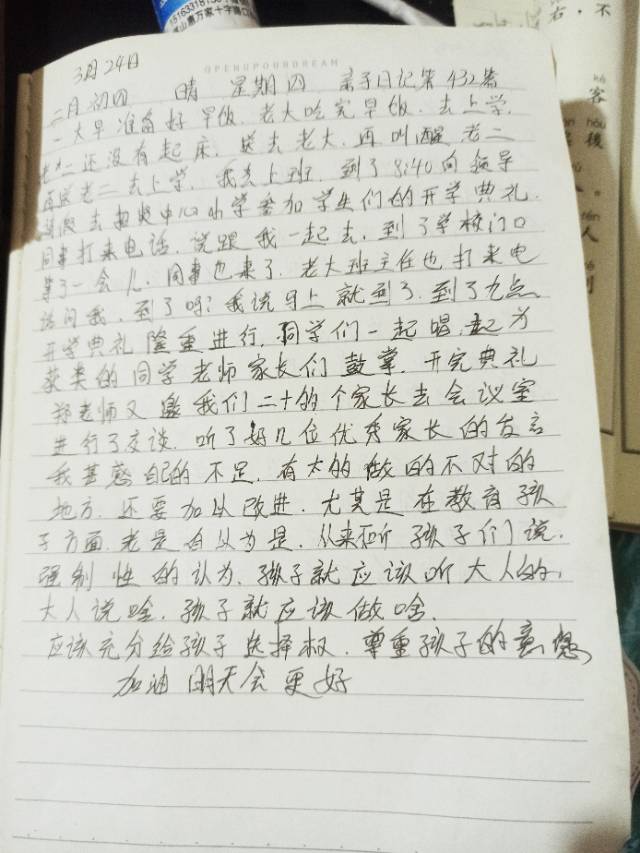 15163318150
惠万家十字
右，不
客
後
人
OPENUPOURDREAM
3月24日
二月初四 晴 星期四 亲子日记第432篇
一大早准备好早饭．老大吃完早饭．去上学．
老二还没有起床．送去老大．再叫醒老二
再送老二去上学．我去上班．到了8:40向领导
请假去 中心小学参加学生们的开学典礼．
同事打来电话．说跟我一起去．到了学校门口
等了一会儿．同事也来了．老大班主任也打来电
话问我．到了吗?我说马上就到了．到了九点．
开学典礼隆重进行．同学们一起唱．起为
获奖的同学老师家长们鼓掌．开完典礼
老师又邀我们二十的个家长去会议室
进行了交谈．听了好几位优秀家长的发言
我甚感自己的不足．有太的做的不对的
地方．还要加以改进．尤其是在教育孩
子方面．老是自以为是．从来不听孩子们说．
强制性的认为．孩子就应该听大人的，
大人说啥．孩子就应该做啥．
应该充分给孩子选择权．尊重孩子的意愿，
加油 明天会更好